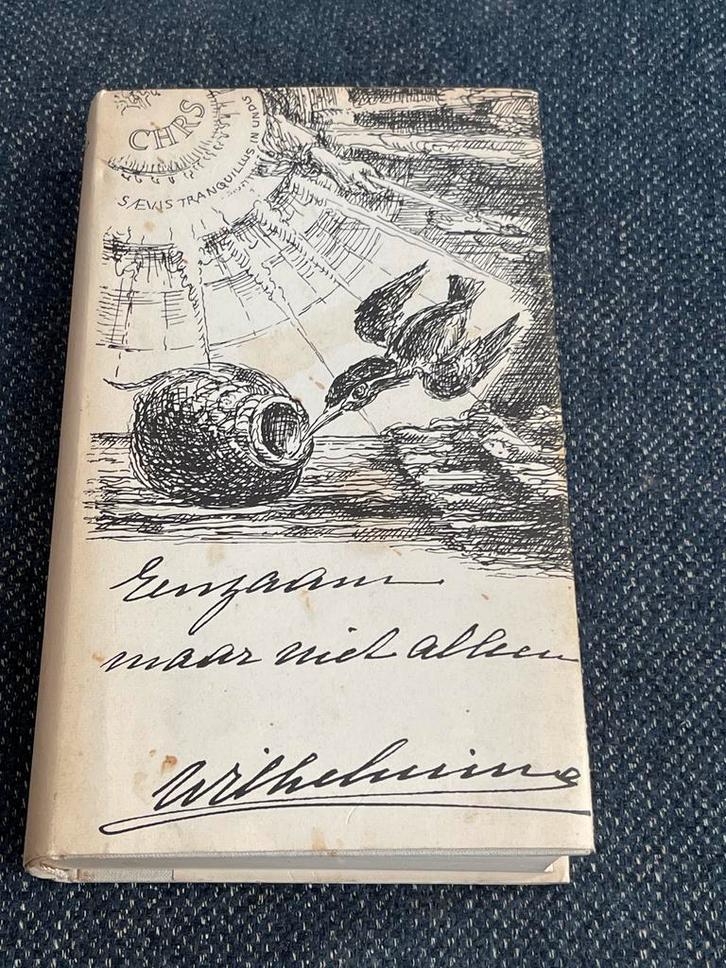 CHRS
SÆVIS TRANQUILLUS IN UNDIS
Eenzaam
maar niet alleen
Wilhelmina